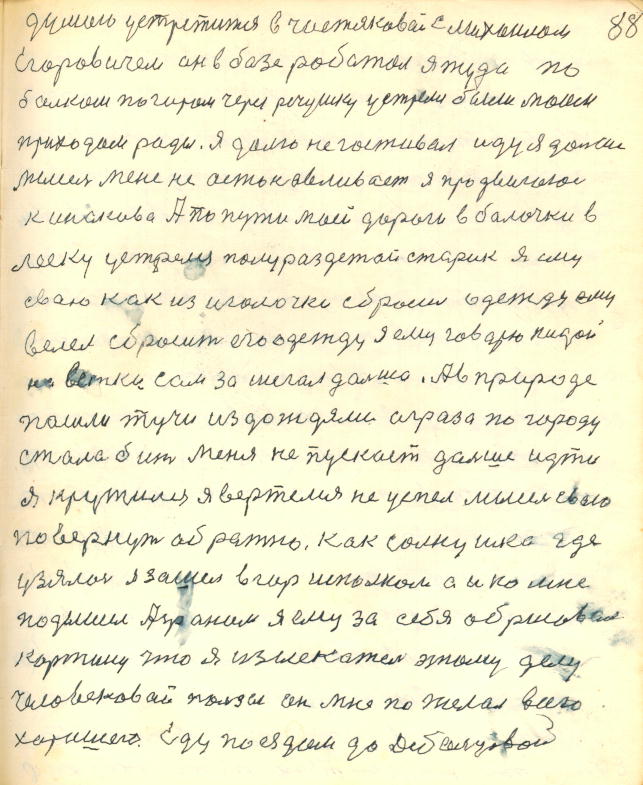 88
думаю устретится в Чистяковай с Михаилом
Егоровичем он в базе работал я туда по
балкам по гарам через речушку устрели были моим
приходам рады. Я долго не гостивал иду я дальше
мысля мене не астонавливает я продвигаюся
к инакова А по пути маей дороги в балочки в
леску устрелся полураздетай старик я ему
сваю как из иголочки сбросил одежду ему
велел сбросит его одежду я ему говарю кидай
на ветки сам зашегал дальше. А в природе
пашли тучи из дождями аграза по гораду
стала бит меня не пускает дальше идти
я крутился я вертелся не успел мысля сваю
повернут обратно. Как солнушка где
узялас я зашел в горисполком а и ко мне
подышил Аграном я ему за себя обрисовал
картину что я извлекател этому делу
человековай ползы он мне пожелал всего
харошего. Еду поездам до Дебальцовой